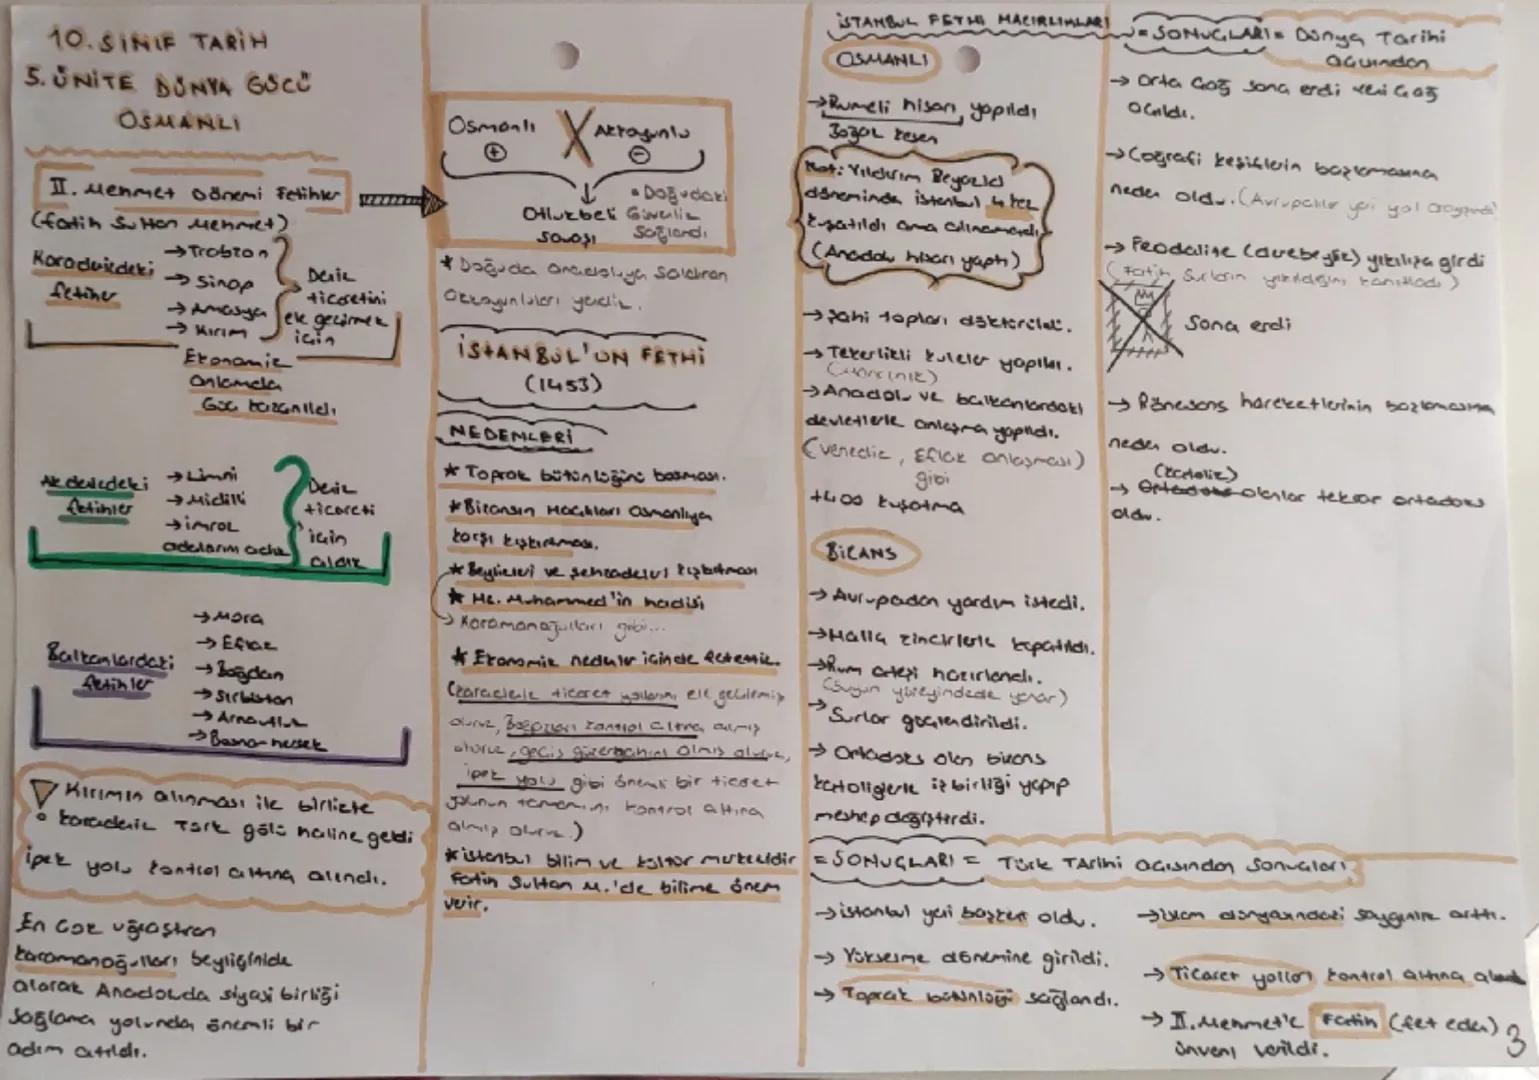 10. SINIF TARİH
5. ÜNİTE DÜNYA GÜCÜ
OSMANLI
II. Mehmet Dönemi Fetihler
(Fatih Sultan Mehmet)
Karadenizdeki
fetihler
→Trabzon
→Sinop
→Amasya
→Kırım
Deniz
ticaretini
ele geçirmek
için
Ekonomik
anlamda
Güç kazanıldı
Akdenizdeki
fetihler
→Limni
→Midilli
→imroz
adalarını
Deniz
ticareti
için
aldık
Balkanlardaki
fetihler
→Mora
→Eflak
→Boğdan
→Sırbistan
→Arnavutluk
→Bosna-hersek
Kırımın alınması ile birlikte
karadeniz Türk gölü haline geldi
ipek yolu kontrol altına alındı.
En çok uğraştıran
karamanoğulları beyliğinide
alarak Anadoluda siyasi birliği
Sağlama yolunda önemli bir
adım atıldı.
Osmanlı X Akkoyunlu
+ -
Otlukbeli
Savaşı
• Doğudaki
Güvenlik
Sağlandı
* Doğuda anadoluya saldıran
Akkoyunluları yendik.
İSTANBUL'UN FETHİ
(1453)
NEDENLERİ
* Toprak bütünlüğünü bozması.
* Bizansın Haçlıları Osmanlıya
karşı kışkırtması.
* Beylikleri ve şehzadeleri kışkırtması
* Hz. Muhammed'in hadisi
→ Karamanoğulları gibi...
* Ekonomik nedenler içinde fetettik.
(karadeniz ticaret yollarını ele geçirmiş
oluruz, Boğazları kontrol altına almış
oluruz, geçiş güzergahını almış oluruz,
ipek yolu gibi önemli bir ticaret
yolunun tamamını kontrol altına
almış oluruz.)
* istanbul bilim ve kültür merkezidir
Fatih Sultan M.'de bilime önem
verir.
İSTANBUL FETHİ HAZIRLIKLARI
OSMANLI
→Rumeli hisarı yapıldı
Boğaz kesen
Not: Yıldırım Beyazıd
döneminde istanbul 4 kez
kuşatıldı ama alınamadı.
(Anadolu hisarı yaptı)
→şahi topları döktürüldü.
→Tekerlekli kuleler yapıldı.
(Mancınık)
→Anadolu ve balkanlardaki
devletlerle anlaşma yapıldı.
(Venedik, Eflak anlaşması)
gibi
+400 kuşatma
BİZANS
→Avrupadan yardım istedi.
→Haliç zincirlerle kapatıldı.
→Rum ateşi hazırlandı.
(Suyun yüzeyindede yanar)
→Surlar güçlendirildi.
→ Ortadoks olan bizans
katoliğerle iş birliği yapıp
meshep değiştirdi.
=SONUÇLARI= Dünya Tarihi
açısından
→ Orta Çağ sona erdi yeni Çağ
açıldı.
→Coğrafi keşiflerin başlamasına
neden oldu. (Avrupalılar yeni yol arayışında)
→ Feodalite (derebeylik) yıkılışa girdi
(Fatih, Surların yıkıldığını kanıtladı)
Sona erdi
→ Rönesans hareketlerinin başlamasına
neden oldu.
(katolik)
→ Ortadoks olanlar tekrar ortadoks
oldu.
=SONUÇLARI= Türk Tarihi açısından Sonuçları
→istanbul yeni başkent oldu.
→ Yükselme dönemine girildi.
→ Toprak bütünlüğü sağlandı.
→islam dünyasındaki saygınlık arttı.
→ Ticaret yolları kontrol altına alındı
→ II. Mehmet'e Fatih (fet eden)
ünvanı verildi.
3